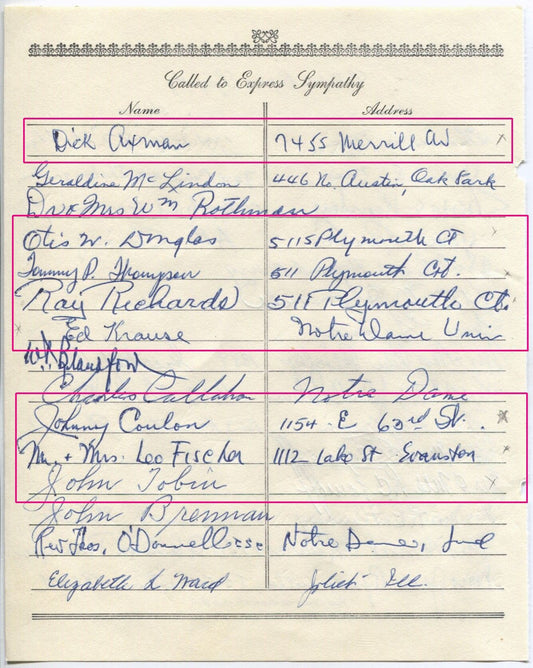 Called to Express Sympathy
Name Address
Dick Axman 7455 Merrill Av x
Geraldine McLindon 446 No. Austin, Oak Park
Dr & Mrs Wm Rothman
Otis W. Douglas 5115 Plymouth Ct
Tommy P. Thompson 511 Plymouth Crt.
Ray Richards 511 Plymouth Ct.
Ed Krause Notre Dame Univ
Blansfow
Charles Callahan Notre Dame
Johnny Coulon 1154 - E 63rd St. x
Mr. + Mrs. Leo Fischer 1112 Lake St Evanston x
John Tobin x
John Brennan
Rev Thos. O'Donnell csc Notre Dame, Ind
Elizabeth L. Ward Joliet Ill.